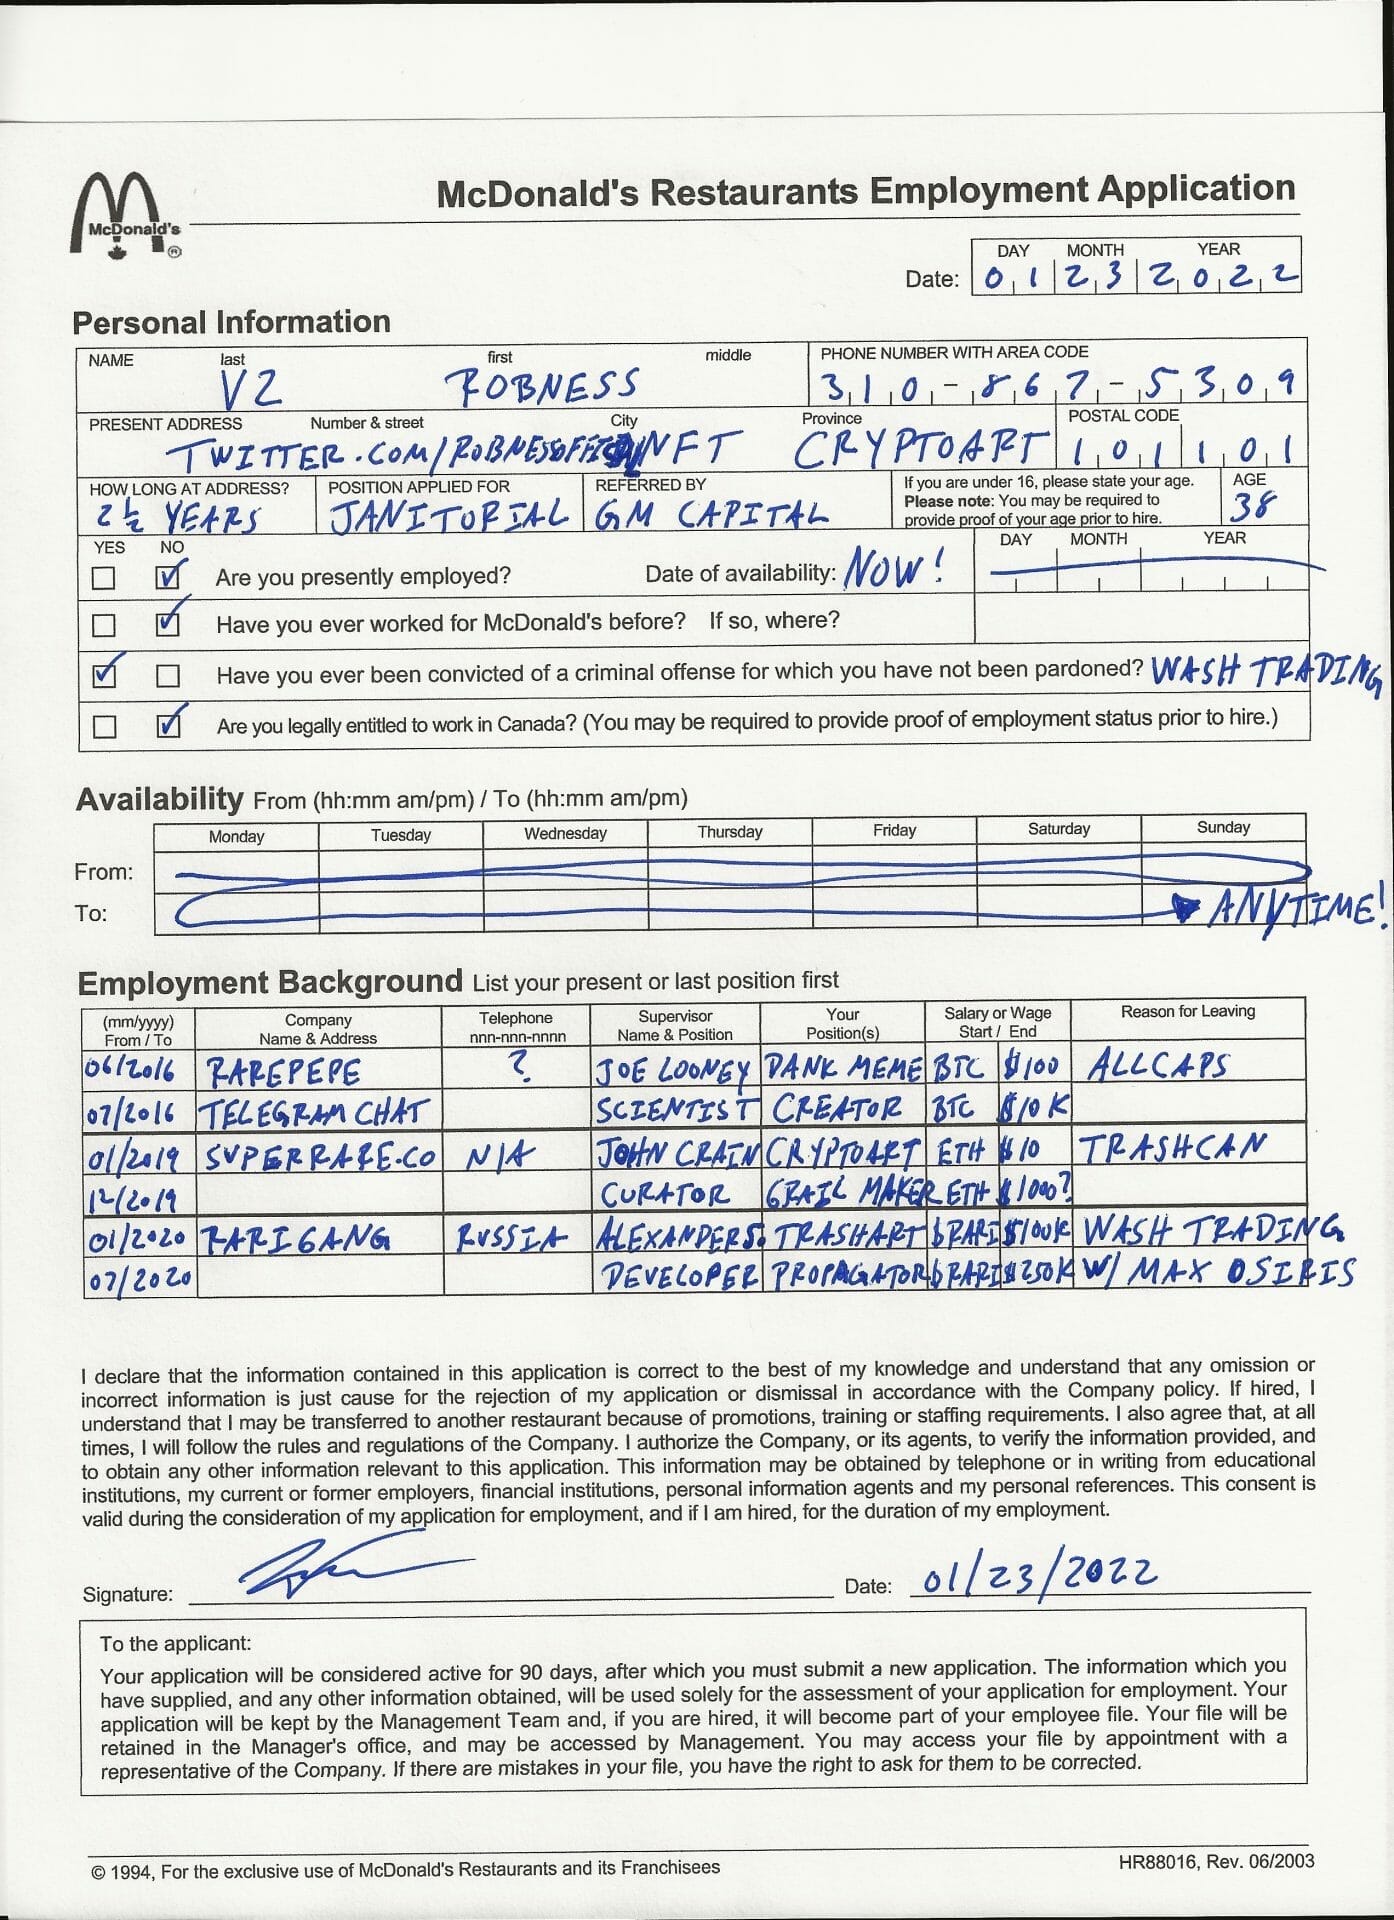 McDonald's ®
McDonald's Restaurants Employment Application
DAY MONTH YEAR
Date: 0 1 2 3 2 0 2 2
Personal Information
NAME last first middle PHONE NUMBER WITH AREA CODE
V2 ROBNESS 310-867-5309
PRESENT ADDRESS Number & street City Province POSTAL CODE
TWITTER.COM/ROBNESSOFFICIAL NFT CRYPTOART 1 0 1 1 0 1
HOW LONG AT ADDRESS? POSITION APPLIED FOR REFERRED BY If you are under 16, please state your age. AGE
2 1/2 YEARS JANITORIAL GM CAPITAL Please note: You may be required to 38
provide proof of your age prior to hire.
YES NO DAY MONTH YEAR
Are you presently employed? Date of availability: NOW!
Have you ever worked for McDonald's before? If so, where?
Have you ever been convicted of a criminal offense for which you have not been pardoned? WASH TRADING
Are you legally entitled to work in Canada? (You may be required to provide proof of employment status prior to hire.)
Availability From (hh:mm am/pm) / To (hh:mm am/pm)
Monday Tuesday Wednesday Thursday Friday Saturday Sunday
From:
To: ANYTIME!
Employment Background List your present or last position first
(mm/yyyy) Company Telephone Supervisor Your Salary or Wage Reason for Leaving
From / To Name & Address nnn-nnn-nnnn Name & Position Position(s) Start / End
06/2016 RAREPEPE ? JOE LOONEY DANK MEME BTC $100 ALLCAPS
07/2016 TELEGRAM CHAT SCIENTIST CREATOR BTC $10K
01/2019 SUPERRARE.CO N/A JOHN CRAIN CRYPTOART ETH $10 TRASHCAN
12/2019 CURATOR GRAIL MAKER ETH $1000?
01/2020 RARIGANG RUSSIA ALEXANDER S. TRASHART $RARI $100K WASH TRADING
07/2020 DEVELOPER PROPAGATOR $RARI $250K W/ MAX OSIRIS
I declare that the information contained in this application is correct to the best of my knowledge and understand that any omission or
incorrect information is just cause for the rejection of my application or dismissal in accordance with the Company policy. If hired, I
understand that I may be transferred to another restaurant because of promotions, training or staffing requirements. I also agree that, at all
times, I will follow the rules and regulations of the Company. I authorize the Company, or its agents, to verify the information provided, and
to obtain any other information relevant to this application. This information may be obtained by telephone or in writing from educational
institutions, my current or former employers, financial institutions, personal information agents and my personal references. This consent is
valid during the consideration of my application for employment, and if I am hired, for the duration of my employment.
Signature: Date: 01/23/2022
To the applicant:
Your application will be considered active for 90 days, after which you must submit a new application. The information which you
have supplied, and any other information obtained, will be used solely for the assessment of your application for employment. Your
application will be kept by the Management Team and, if you are hired, it will become part of your employee file. Your file will be
retained in the Manager's office, and may be accessed by Management. You may access your file by appointment with a
representative of the Company. If there are mistakes in your file, you have the right to ask for them to be corrected.
© 1994, For the exclusive use of McDonald's Restaurants and its Franchisees HR88016, Rev. 06/2003